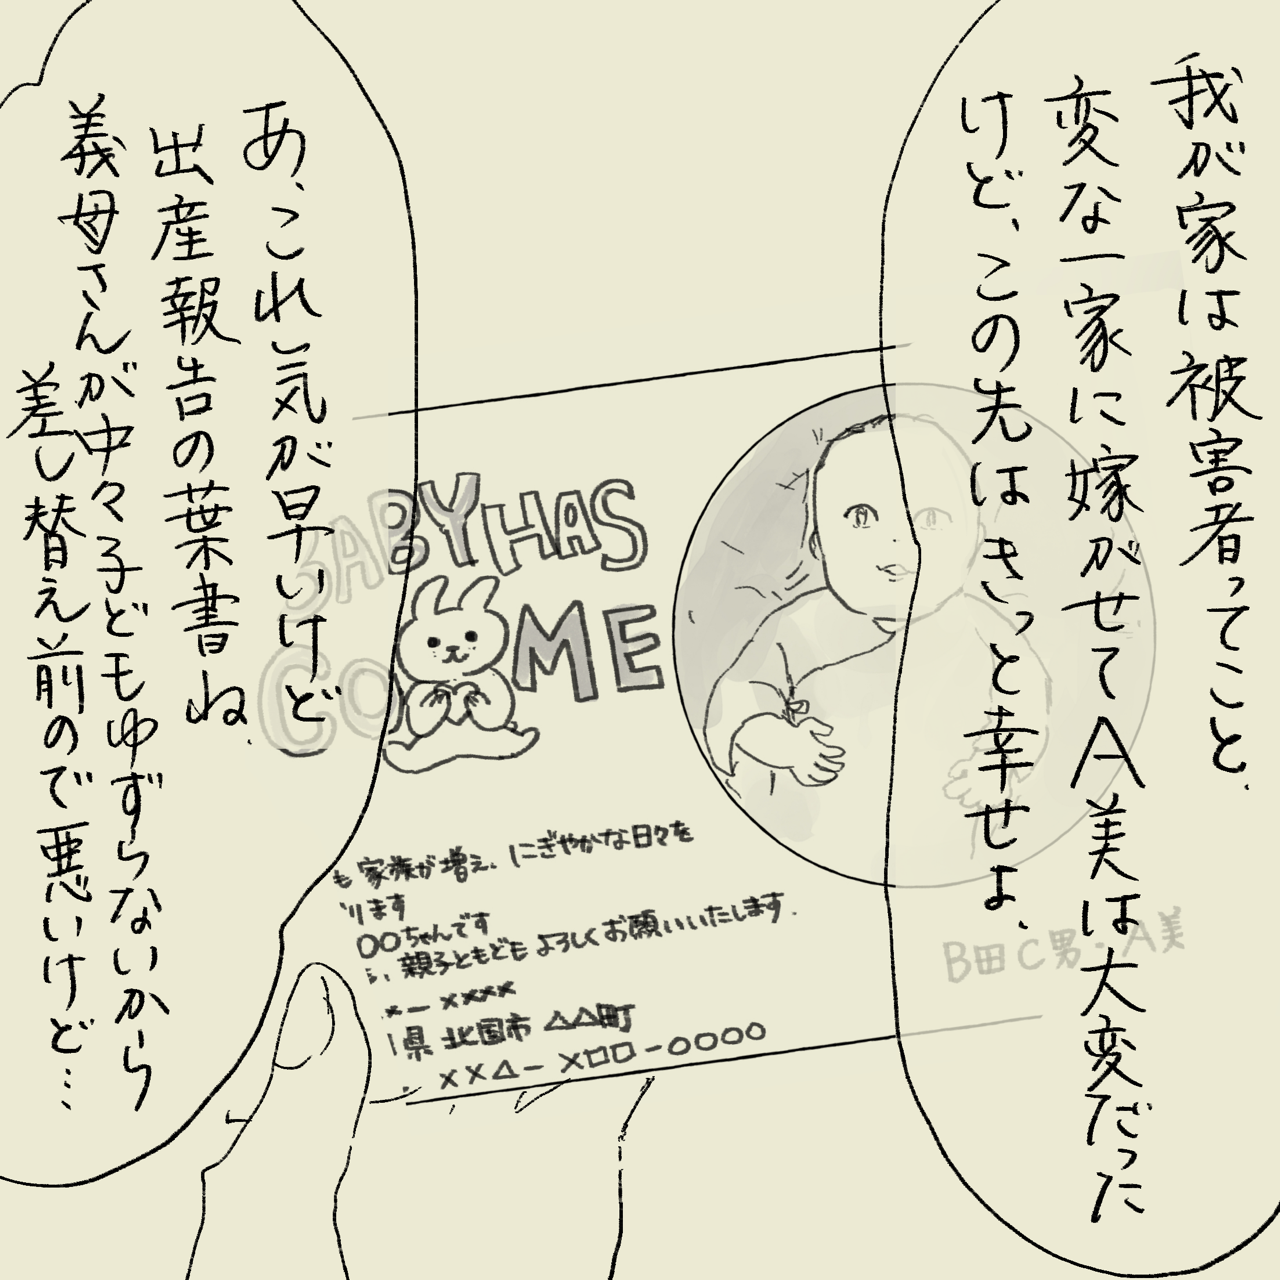 我が家は被害者ってこと.
変な一家に嫁がせてA美は大変だった
けど、この先はきっと幸せよ.
あ、これ気が早いけど
出産報告の葉書ね.
義母さんが中々子どもゆずらないから
差し替え前ので悪いけど…
BABY HAS
COME
も家族が増え、にぎやかな日々を
ります
〇〇ちゃんです
い、親子ともどもよろしくお願いいたします.
B田C男・A美
x－xxxx
県北国市 △△町
xx△－x□□－〇〇〇〇